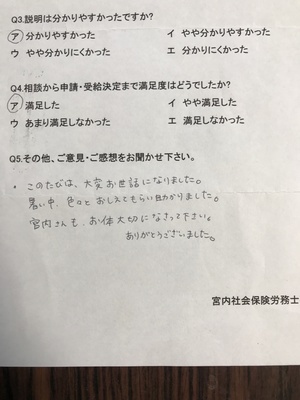 Q3.説明は分かりやすかったですか?
ア 分かりやすかった　イ やや分かりやすかった
ウ やや分かりにくかった　エ 分かりにくかった
Q4.相談から申請・受給決定まで満足度はどうでしたか?
ア 満足した　イ やや満足した
ウ あまり満足しなかった　エ 満足しなかった
Q5.その他、ご意見・ご感想をお聞かせ下さい。
・このたびは、大変お世話になりました。
暑い中、色々とおしえてもらい助かりました。
宮内さんも、お体大切になさって下さい。
ありがとうございました。
宮内社会保険労務士